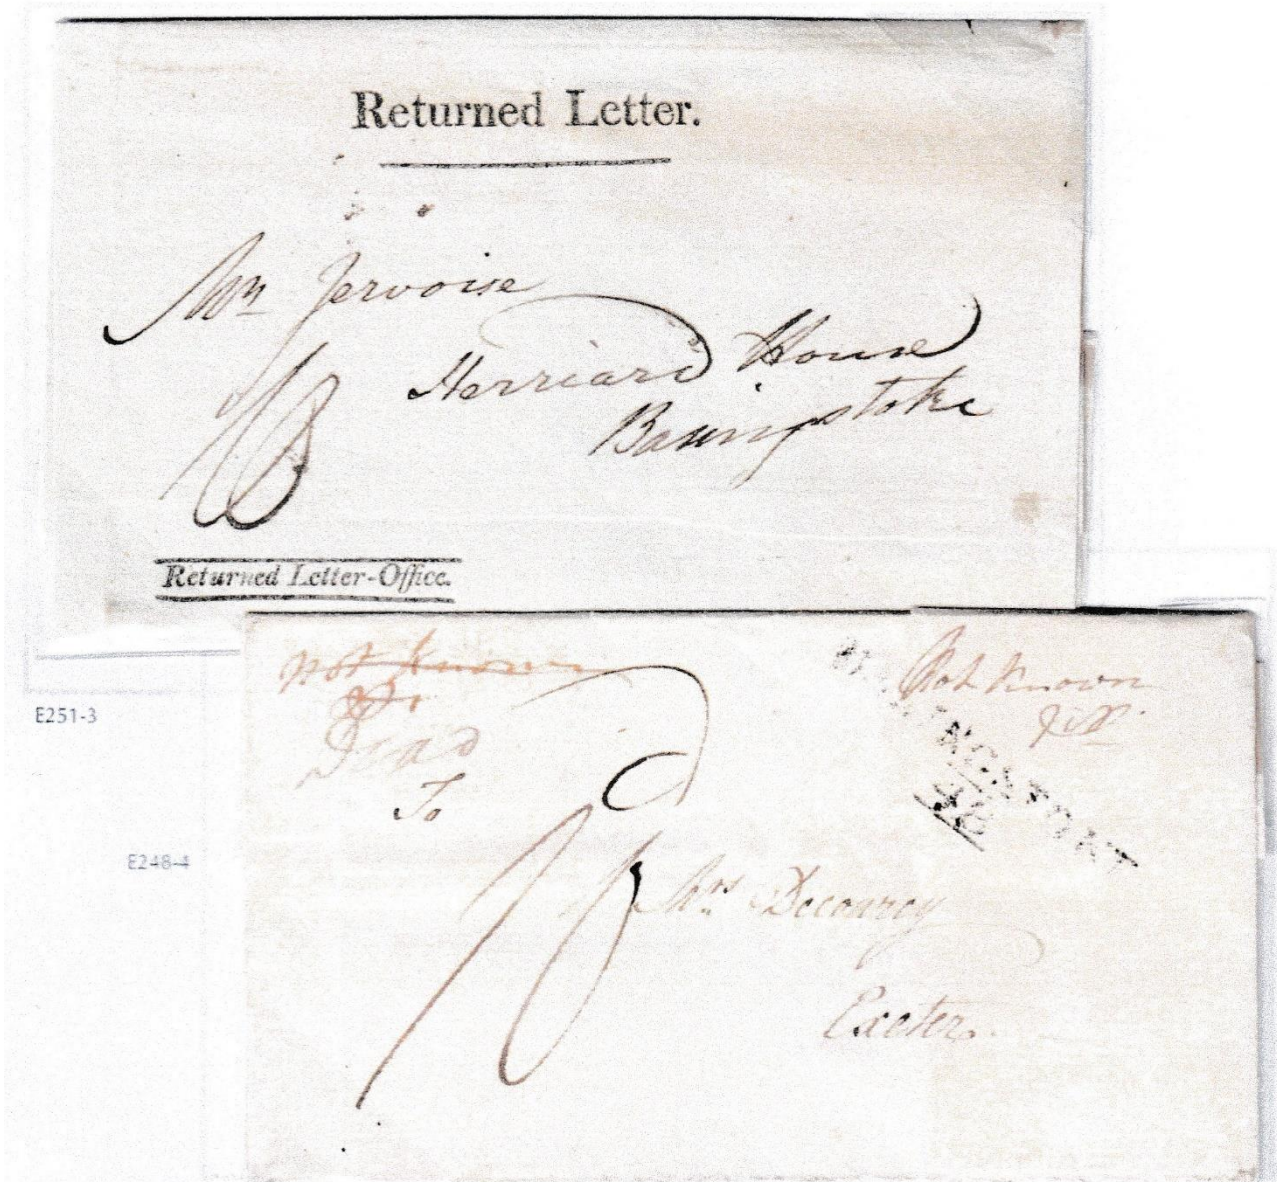 Returned Letter.
Mrs Jervoise
Herriard House
Basingstoke
Returned Letter-Office.
E251-3
not known
Dead
To
Not known
BASINGSTOKE
E248-4
Mrs Decourcy
Exeter.